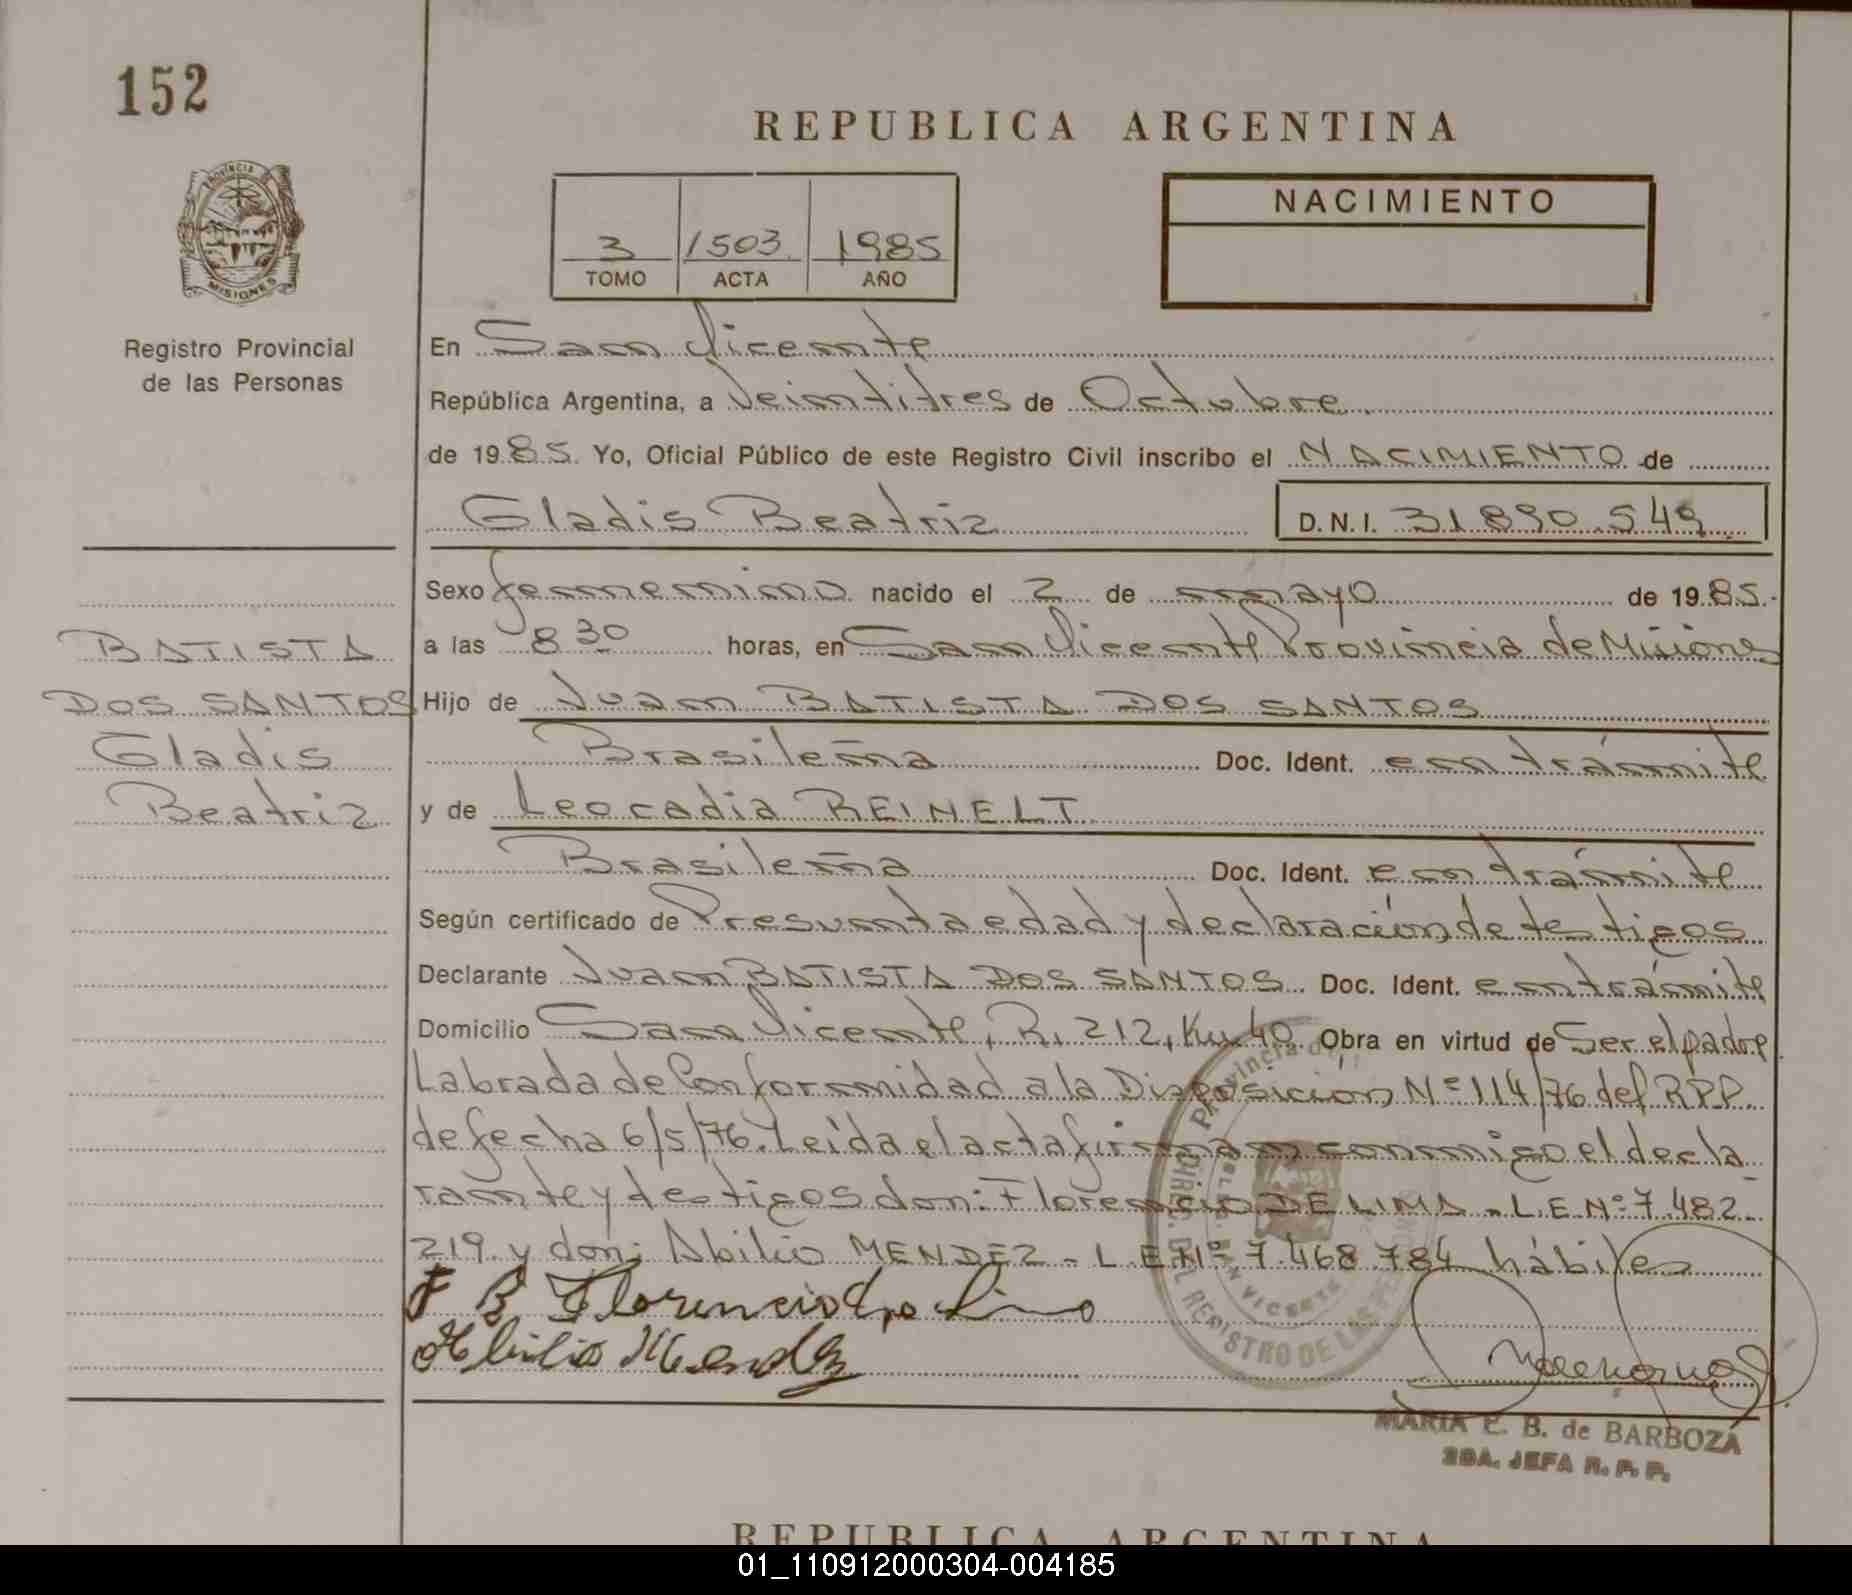 152
REPUBLICA ARGENTINA
PROVINCIA
MISIONES
Registro Provincial
de las Personas
3 1503. 1985
TOMO ACTA AÑO
NACIMIENTO
En San Vicente
República Argentina, a Veintitres de Octubre
de 1985. Yo, Oficial Público de este Registro Civil inscribo el NACIMIENTO de
Gladis Beatriz D.N.I. 31.890.549
BATISTA
DOS SANTOS
Gladis
Beatriz
Sexo femenino nacido el 2 de mayo de 1985.
a las 8 30 horas, en San Vicente Provincia de Misiones
Hijo de Juan BATISTA DOS SANTOS
Brasileña Doc. Ident. en trámite
y de Leocadia REINELT
Brasileña Doc. Ident. en trámite
Según certificado de Presunta edad y declaración de testigos
Declarante Juan BATISTA DOS SANTOS. Doc. Ident. en trámite
Domicilio San Vicente, R. 212, Km 40. Obra en virtud de Ser el padre.
Labrada de Conformidad a la Disposición Nº 114/76 del R.P.P.
de fecha 6/5/76. Leída el acta firman conmigo el decla
rante y testigos don: Florencio DE LIMA - L.E Nº 7.482-
219 y don: Abilio MENDEZ - L.E Nº 7.468.784 hábiles
J B Florencio de Lima
Abilio Mendez
Provincia de
DIREC. DEL REGISTRO DE LAS PE
SAN VICENTE
MARIA E. B. de BARBOZA
2DA. JEFA R. P. P.
REPUBLICA ARGENTINA
01_110912000304-004185